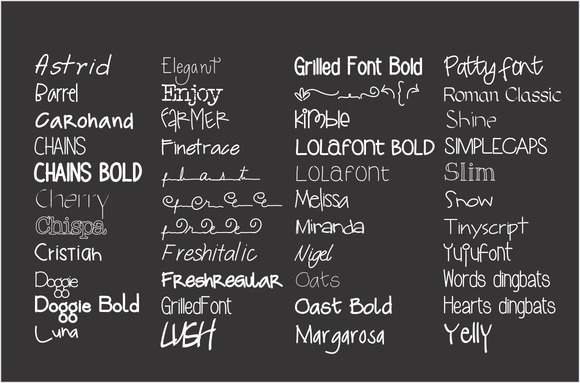 Astrid
Barrel
CaRohand
CHAINS
CHAINS BOLD
Cherry
Chispa
Cristian
Doggie
Doggie Bold
Luna
Elegant
Enjoy
FARMER
Finetrace
flast
free
Freshitalic
FReshRegulaR
GrilledFont
LUSH
Grilled Font Bold
Kimble
LOLafont BOLD
LOLafont
Melissa
Miranda
Nigel
Oats
Oast Bold
Margarosa
Pattyfont
Roman Classic
Shine
SIMPLECAPS
Slim
Snow
Tinyscript
Yujufont
Words dingbats
Hearts dingbats
Yelly